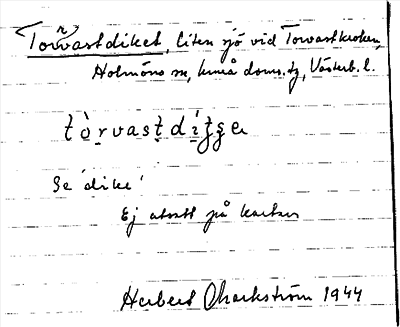 Torvastdiket, liten sjö vid Torvastkroken,
Holmöns sn, Umeå doms.tg, Västerb. l.
tòrvastdítse
Se 'dike'
Ej utsatt på kartan
Herbert Markström 1944